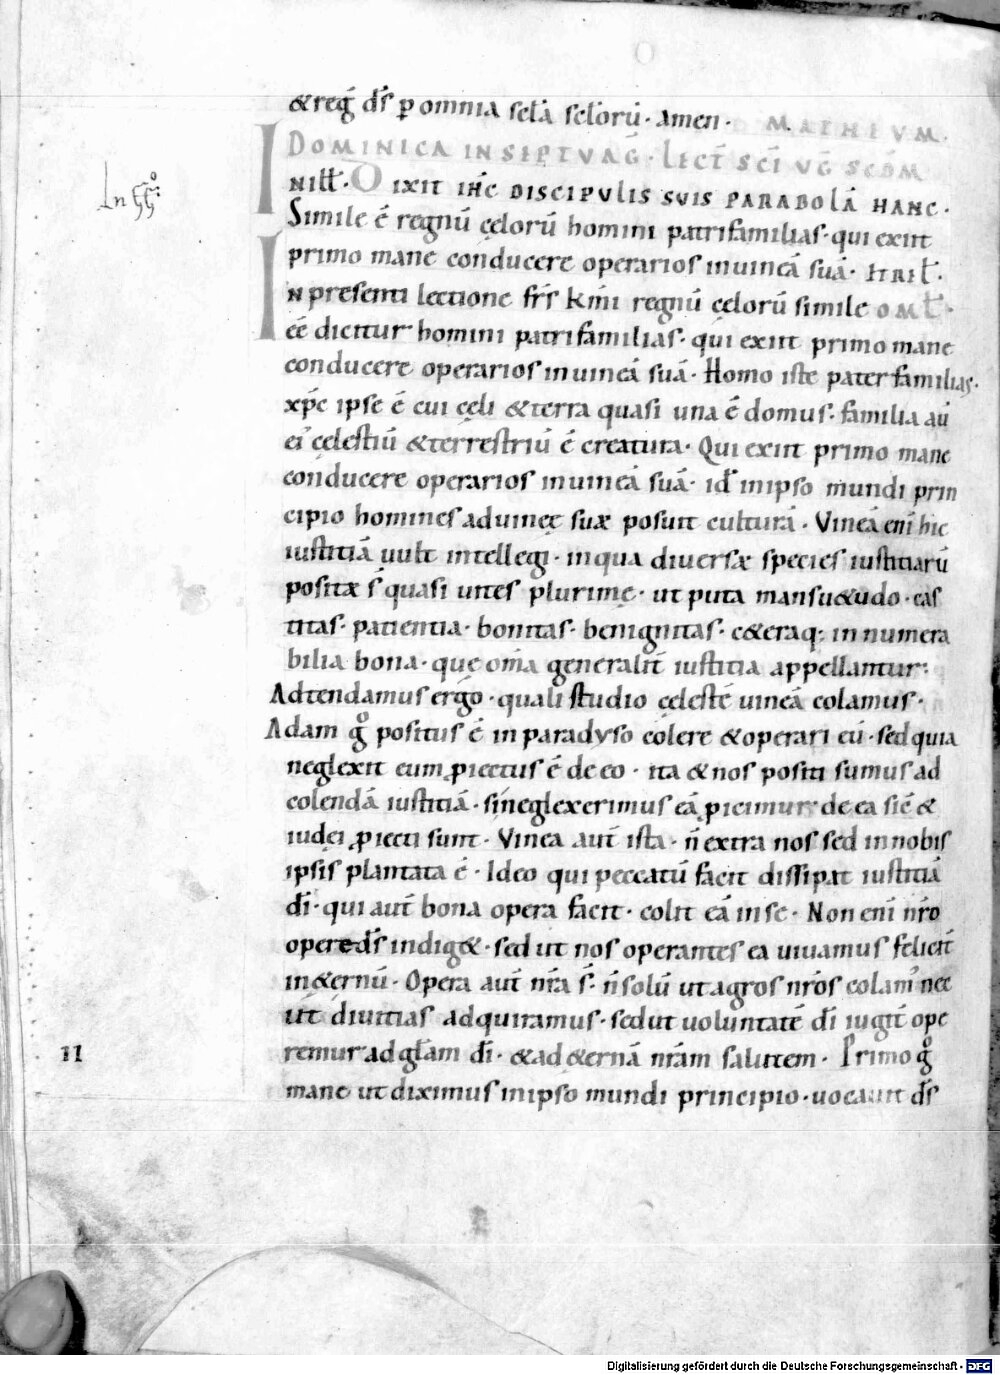 & reḡ d̄s ꝑ omnia sc̄la sc̄lorū · amen · MATHEUM ·
DOMINICA IN SEPTUAḠ · LECT̄ SC̄I EUḠ SCDM
IN ILL̄ · DIXIT IHC̄ DISCIPULIS SUIS PARABOLĀ HANC ·
Simile ē regnū cęlorū homini patri familias · qui exiit
primo mane conducere operarios in uineā suā · ET REL̄ ·
IN presenti lectione fr̄s km̄i regnū cęlorū simile OML̄ ·
eē dicitur homini patri familias · qui exiit primo mane
conducere operarios in uineā suā · Homo iste pater familias ·
xp̄c ipse ē cui cęli & terra quasi una ē domus · familia aū
ei' cęlestiū & terrestriū ē creatura · Qui exiit primo mane
conducere operarios in uineā suā · id̄ in ipso mundi prin
cipio homines ad uineę suæ posuit culturā · Vineā eni hic
iustitiā uult intellegi · in qua diuersæ species iustitiarū
positæ s̄ quasi uites plurimę · ut puta mansu&udo · cas
titas · patientia · bonitas · benignitas · c&eraq; in numera
bilia bona · que om̄a generalit̄ iustitia appellantur ·
Adtendamus ergo · quali studio cęlestē uineā colamus ·
Adam g̊ positus ē in paradyso colere & operari eū · sed quia
neglexit eum ꝓiectus ē de eo · ita & nos positi sumus ad
colendā iustitiā · si neglexerimus eā ꝓicimur de ea sic̄ &
iudei ꝓiecti sunt · Vinea aut̄ ista · n̄ extra nos sed in nobis
ipsis plantata ē · Ideo qui peccatū facit dissipat iustitiā
d̄i · qui aut̄ bona opera facit · colit eā in se · Non eni nr̄o
opere d̄s indig& · sed ut nos operantes ea uiuamus felicit̄
in &ernū · Opera aut̄ nr̄a s̄ · n̄ solū ut agros nr̄os colam' nec
ut diuitias adquiramus · sed ut uoluntatē d̄i iugit̄ ope
remur ad gl̄am d̄i · & ad &ernā nr̄am salutem · Primo g̊
11
mane ut diximus in ipso mundi principio · uocauit d̄s
Digitalisierung gefördert durch die Deutsche Forschungsgemeinschaft - DFG